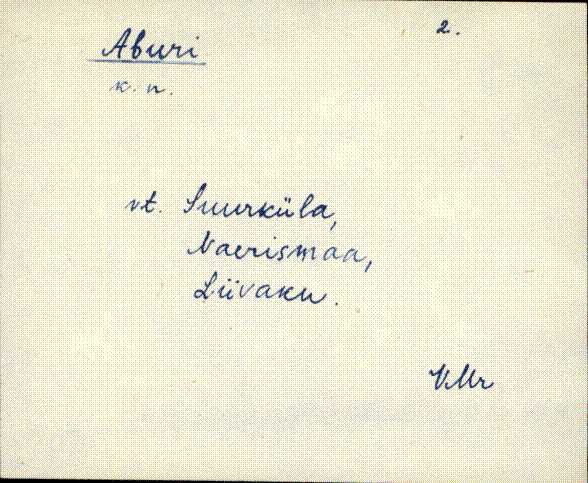 2.
Aburi
k. n.
vt. Suurküla,
Naerismaa,
Liivaku.
V.Mr